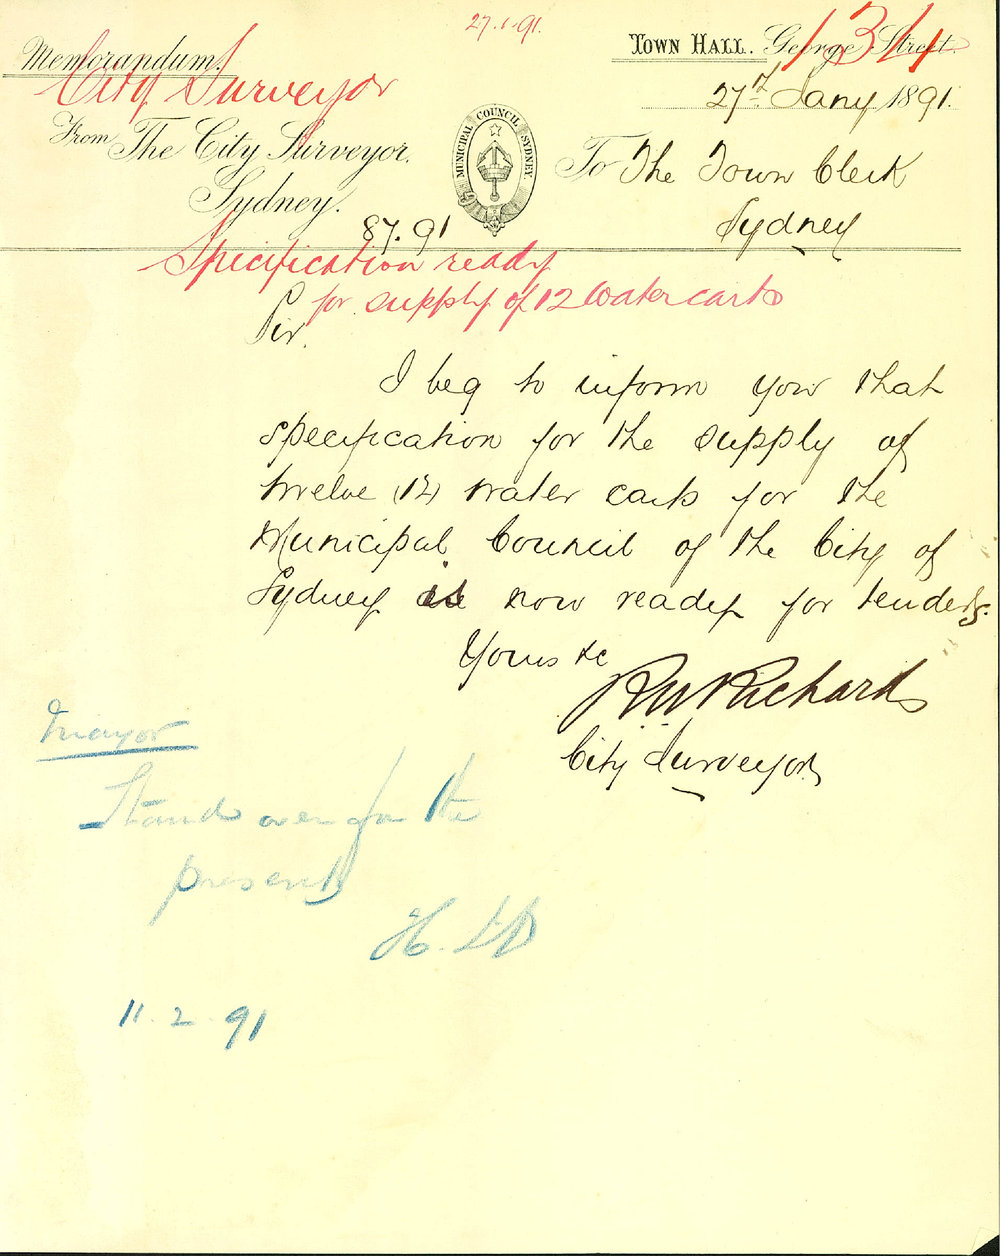 27.1.91.
Memorandum.
City Surveyor
From The City Surveyor.
Sydney.
87.91
MUNICIPAL COUNCIL SYDNEY.
TOWN HALL. George Street.
27th Jany 1891.
To The Town Clerk
Sydney
Specification ready
for supply of 12 Water carts
Sir.
I beg to inform you that
specification for the supply of
twelve (12) water carts for the
Municipal Council of the City of
Sydney is now ready for tenders.
Yours &c
RW Richards
City Surveyor
Mayor
Stand over for the
present
11.2.91